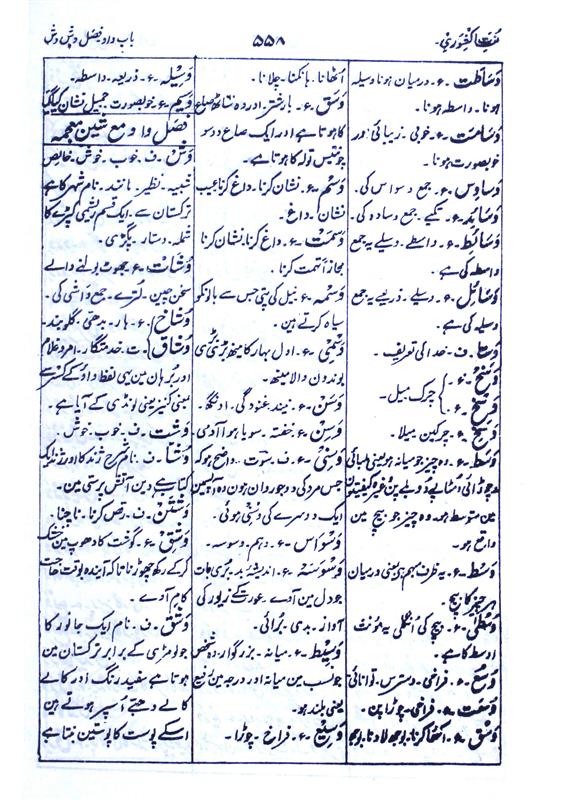 لغت کشوری۔
۵۵۸
باب واو فصل وس وش
وَسَاطَت ۔ ع ۔ درمیان ہونا وسیلہ
ہونا ۔ واسطہ ہونا ۔
وَسَامَت ۔ ع ۔ خوبی ۔ زیبائی اور
خوبصورت ہونا ۔
وَسَاوِس ۔ ع ۔ جمع وسواس کی ۔
وَسَائِد ۔ ع ۔ تکیے ۔ جمع وسادہ کی ۔
وَسَائِط ۔ ع ۔ واسطے ۔ وسیلے یہ جمع
واسطہ کی ہے ۔
وَسَائِل ۔ ع ۔ وسیلے ۔ ذریعے یہ جمع
وسیلہ کی ہے ۔
وَستا ۔ ف ۔ خدا کی تعریف ۔
وَسَخ ۔ ع ۔
چرک میل ۔
وَسِخ ۔ ع ۔ چرکین میلا ۔
وَسَط ۔ ع ۔ وہ چیز جو میانہ ہو یعنی لمبائی
چوڑائی مٹاپے دبلے پن وغیرہ کیفیتون
مین متوسط ہو ۔ وہ چیز جو بیچ مین
واقع ہو ۔
وَسْط ۔ ع ۔ یہ ظرف مبہم ہے بمعنی درمیان
ہر چیز کا بیچ ۔
وُسطیٰ ۔ ع ۔ بیچ کی انگلی یہ مؤنث
اوسط کا ہے ۔
وُسْع ۔ ع ۔ فراخی ۔ دسترس ۔ توانائی
وُسْعَت ۔ ع ۔ فراخی ۔ چوڑا پن ۔
وَسْق ۔ ع ۔ اکٹھا کرنا ۔ بوجھ لادنا ۔ بوجھ
اُٹھانا ۔ ہانکنا ۔ چلانا ۔
وَسَق ۔ ع ۔ بار شتر ۔ اور وہ ساٹھ صاع
کا ہوتا ہے اور ایک صاع دو سو
چونتیس تولہ کا ہوتا ہے ۔
وَسْم ۔ ع ۔ نشان کرنا ۔ داغ کرنا ۔ عیب
نشان ۔ داغ ۔
وَسمَت ۔ ع ۔ داغ کرنا ۔ نشان کرنا
مجازاً تہمت کرنا ۔
وَسْمَہ ۔ ع ۔ نیل کی پتی جس سے بالونکو
سیاہ کرتے ہین ۔
وَسْمِی ۔ ع ۔ اول بہار کا مینھ بڑی بڑی
بوندون والا مینھ ۔
وَسَن ۔ ع ۔ نیند ۔ غنودگی ۔ اونگھ ۔
وَسِن ۔ ع ۔ خفتہ ۔ سویا ہوا آدمی ۔
وَسنی ۔ ع ۔ ف ۔ سوت ۔ واضح ہو کہ
جس مرد کی دو جوروان ہون وہ آپسمین
ایک دوسرے کی وسنی ہوئی ۔
وَسْوَاس ۔ ع ۔ وہم ۔ وسوسہ ۔
وَسْوَسَہ ۔ ع ۔ اندیشۂ بد ۔ بری بات
جو دل مین آوے ۔ عورت کے زیور کی
آواز ۔ بدی ۔ برائی ۔
وَسِیط ۔ ع ۔ میانہ ۔ بزرگوار ۔ وہ شخص
جو نسب مین میانہ اور درجہ مین رفیع
یعنی بلند ہو ۔
وَسِیع ۔ ع ۔ فراخ ۔ چوڑا ۔
وَسِیلہ ۔ ع ۔ ذریعہ ۔ واسطہ ۔
وَسِیم ۔ ع ۔ خوبصورت جمیل نشان کیا گیا
فصل واو مع شین معجمہ
وَش ۔ ف ۔ خوب ۔ خوش ۔ خالص
شبیہ ۔ نظیر ۔ مانند ۔ نام شہر کا ہے
ترکستان سے ۔ ایک قسم ریشمی کپڑے کا
شملہ ۔ دستار ۔ پگڑی ۔
وُشَات ۔ ع ۔ جھوٹ بولنے والے
سخن چین ۔ لُترے ۔ جمع واشی کی ۔
وِشَاح ۔ ع ۔ ہار ۔ بدھی ۔ گلوبند ۔
وُشَاق ۔ ت ۔ خدمتگار ۔ امرد غلام
اور برہان مین یہی لفظ واؤ کے کسرے سے
بمعنی کنیز یعنی لونڈی کے آیا ہے ۔
وَشت ۔ ف ۔ خوب ۔ خوش ۔
وَشتا ۔ ف ۔ نام شرح ژند کا اور ژند ایک
کتاب ہے دین آتش پرستی مین ۔
وَشتَن ۔ ف ۔ رقص کرنا ۔ ناچنا ۔
وَشق ۔ ع ۔ گوشت کا دھوپ مین خشک
کرکے رکھ چھوڑنا تاکہ آیندہ بوقت حاجت
کام آوے ۔
وَشَق ۔ ف ۔ نام ایک جانور کا
جو لومڑی کے برابر ترکستان مین
ہوتا ہے سفید رنگ اور کالے
کالے دھبے اُسپر ہوتے ہین
اسکے پوست کا پوستین بنتا ہے